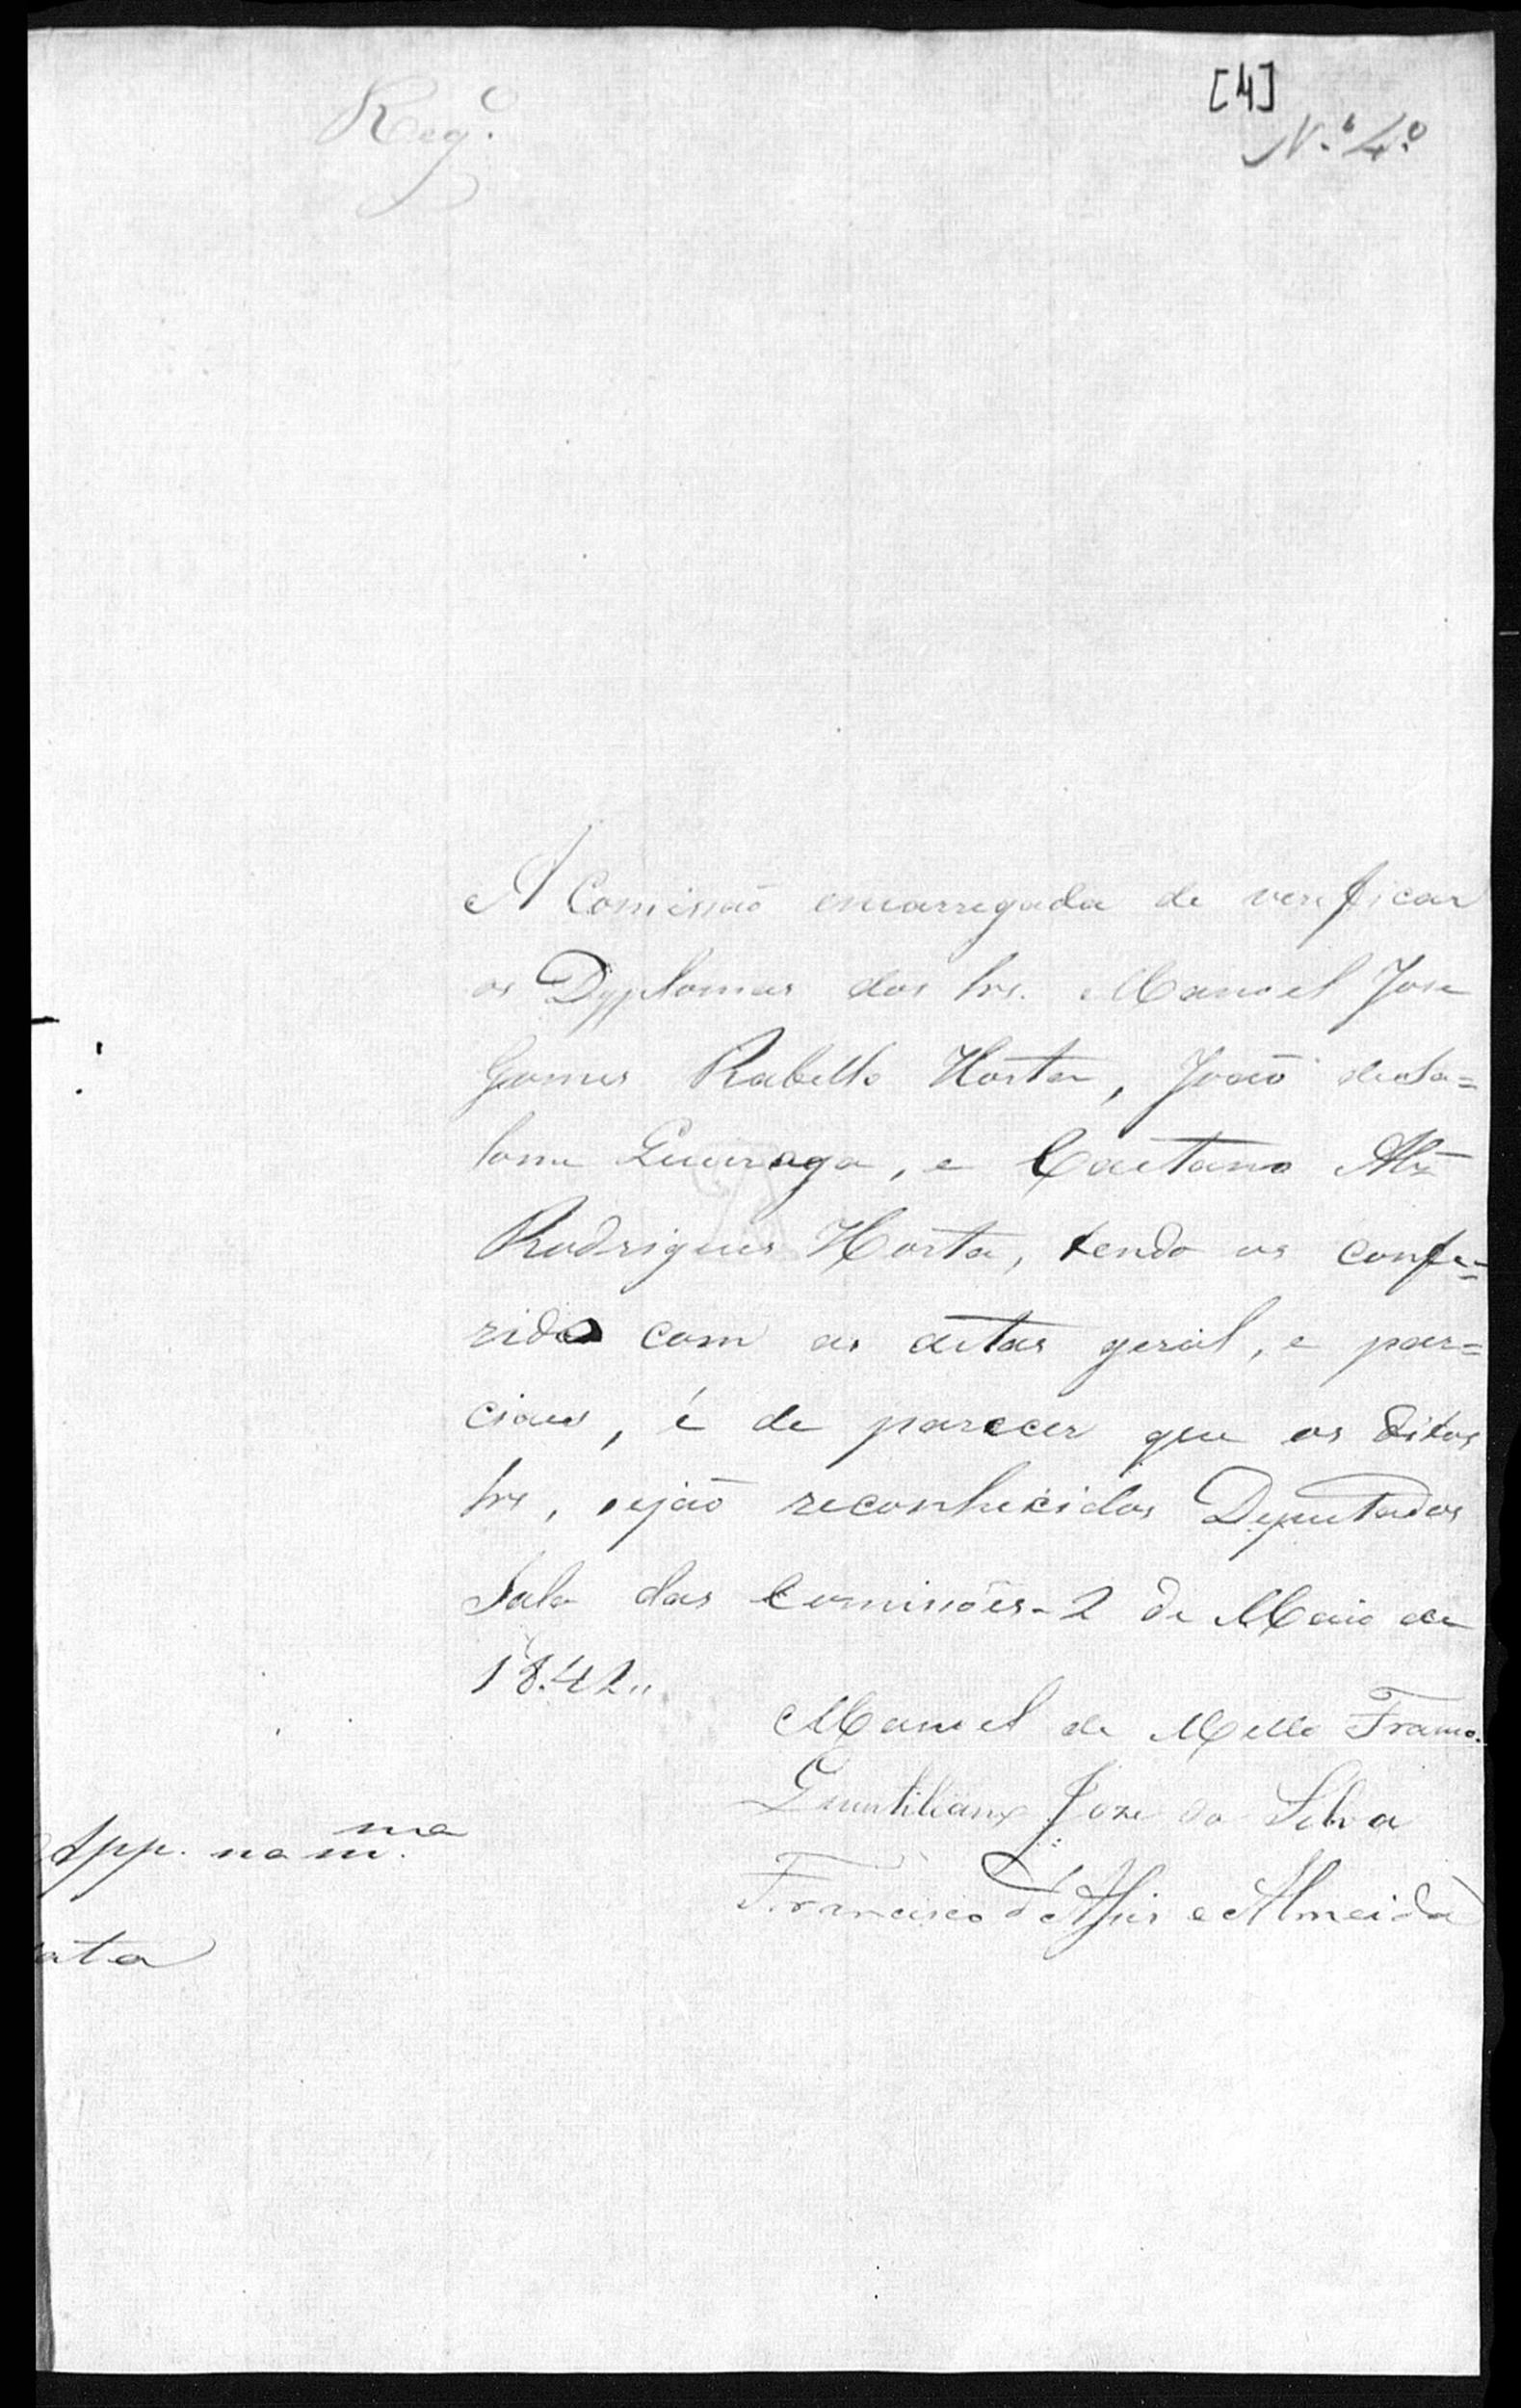 [4]
Reg.º
N.º 4.º
A Comissaõ encarregada de verificar
os Dyplomas dos Srs. Manoel Jose
Gomes Rabello Horta, Joaõ deSa=
lome Queiroga, e Caetano Alz
Rodrigues Horta, tendo os confe=
rido com as actas geral, e par=
ciaes, é de parecer que os ditos
Srs, sejaõ reconhecidos Deputados
Sala das Comissões - 2 de Maio de
1842 "
Manoel de Mello Franco.
Quintiliano Joze da Silva
Francisco d'Assis e Almeida
App. na m.ma
ata